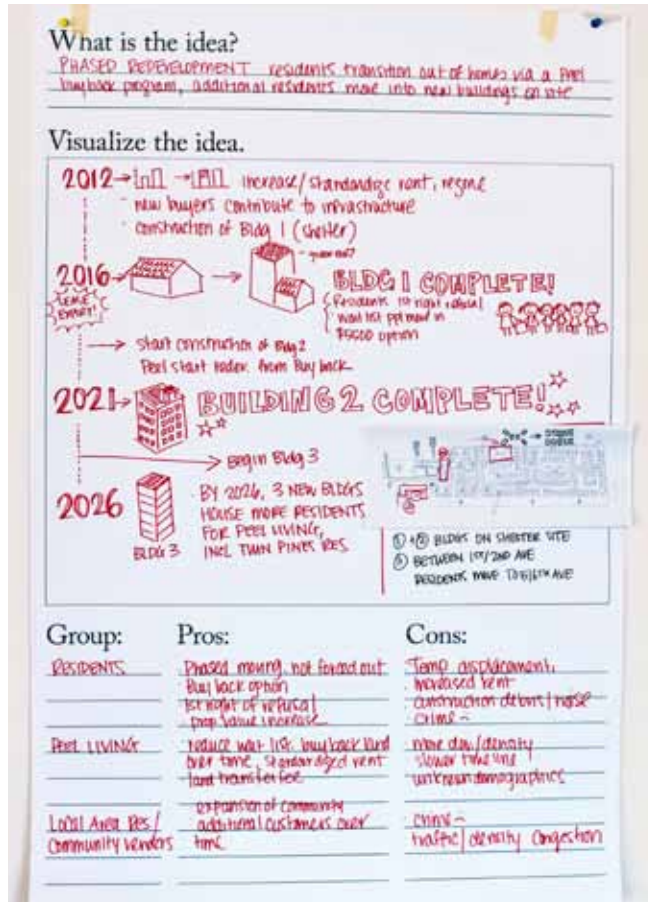 What is the idea?
PHASED REDEVELOPMENT residents transition out of homes via a Peel
buyback program, additional residents move into new buildings on site
Visualize the idea.
2012 → → increase/standardize rent, regime
· new buyers contribute to infrastructure
· construction of Bldg 1 (shelter)
2016 →
LEASE
EXPIRY!
BLDG 1 COMPLETE!
Residents 1st right refusal
wait list ppl move in
option
→ start construction of Bldg 2
Peel start from Buy back
2021 → BUILDING 2 COMPLETE!
→ Begin Bldg 3
2026
BLDG 3
· BY 2026, 3 NEW BLDGS
HOUSE MORE RESIDENTS
FOR PEEL LIVING,
INCL TWIN PINES RES.
① + ② BLDGS ON SHELTER SITE
③ BETWEEN 1ST/2ND AVE
RESIDENTS MOVE TO AVE
Group:
Pros:
Cons:
RESIDENTS
· Phased moving, not forced out
· Buy back option
· 1st right of refusal
· prop value increase
· Temp displacement,
· increased rent
· construction debris/noise
· crime ~
PEEL LIVING
· reduce wait list, buy back land
over time, standardized rent
land transfer fee
· more dev/density
slower timeline
unknown demographics
Local Area Res/
Community vendors
expansion of community
additional customers over
time
· crime ~
traffic/density congestion